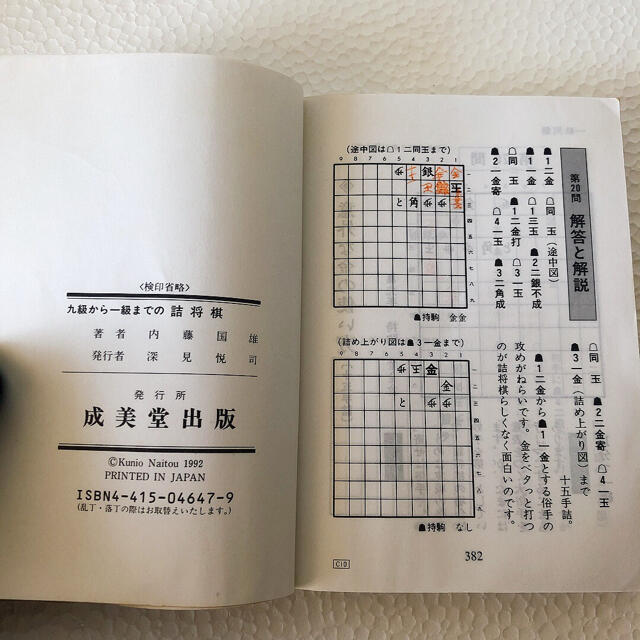 〈検印省略〉
九級から一級までの 詰将棋
著者 内藤国雄
発行者 深見悦司
発行所
成美堂出版
©Kunio Naitou 1992
PRINTED IN JAPAN
ISBN4-415-04647-9
(乱丁・落丁の際はお取替えいたします。)
第20問 解答と解説
☗1二金 ☖同 玉(途中図)
☗1一金 ☖1三玉 ☗2二銀不成
☖同 玉 ☗1二金打 ☖3一玉
☗2一金寄 ☖4一玉 ☗3二角成
☖同 玉 ☗2二金寄 ☖4一玉
☗3一金(詰め上がり図)まで
十五手詰。
☗1二金から☗1一金とする俗手の
攻めがねらいです。金をベタっと打つ
のが詰将棋らしくなく面白いのです。
(途中図は☖1二同玉まで)
9 8 7 6 5 4 3 2 1
☗持駒 金金
(詰め上がり図は☗3一金まで)
9 8 7 6 5 4 3 2 1
☗持駒 なし
382
C10